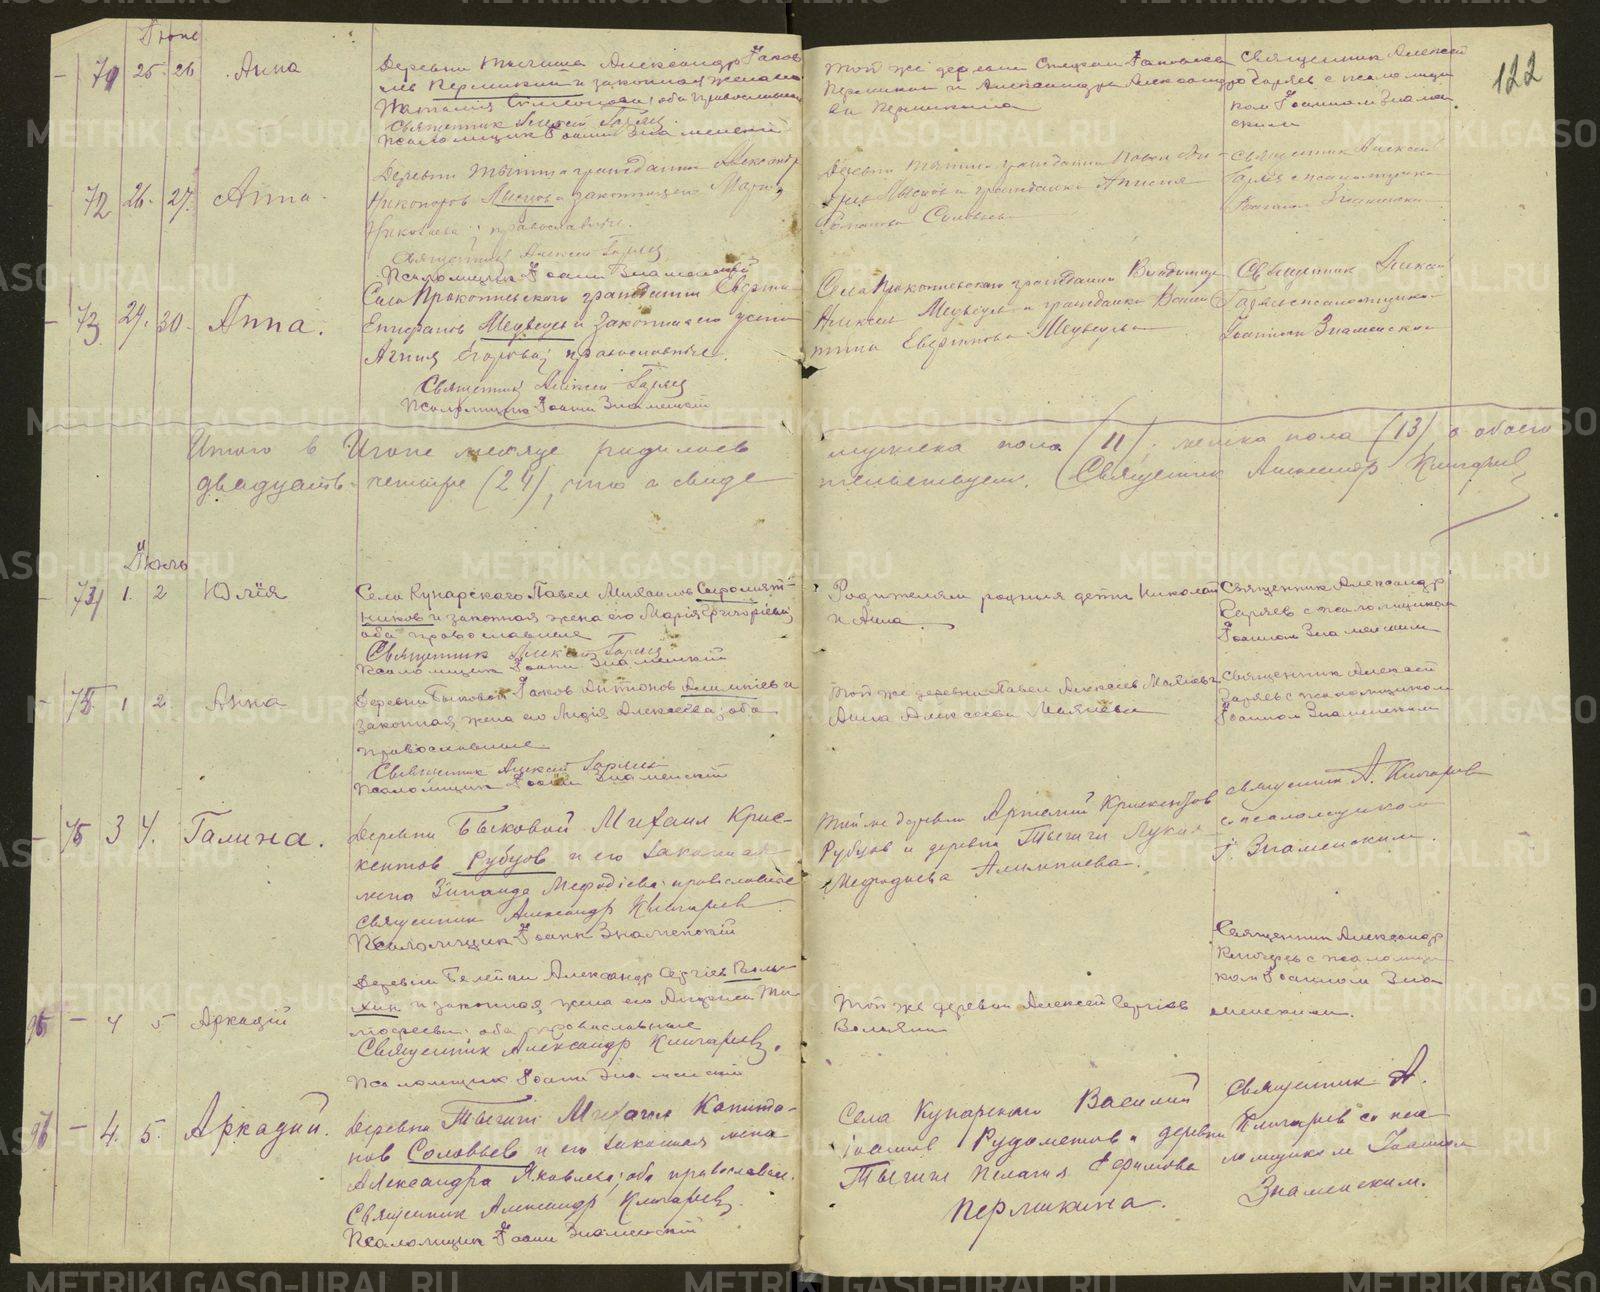 Іюнь
122
71 25. 26 Анна
Деревни Тыгиша Александр Яков
лев Пермикин и законная жена его
Наталия Симеонова; оба православные
Священник Алексей Гаряев
Псаломщик Іоанн Знаменский
Той же деревни
Пермикин и Александра Александро
ва Пермикина
Священник Алексей
Гаряев с псаломщи
ком Іоанном Знамен
ским
72 26. 27. Анна
Деревни Тыгиша гражданин Александр
Никаноров Лысцов и законная его Мария
Николаева; православные.
Священник Алексей Гаряев
Псаломщик Іоанн Знаменский
Деревни Тыгиша гражданин Павел
Лысцов и гражданка
Романова Соловьева
Священник Алексей
Гаряев с псаломщиком
Іоанном Знаменским
73 29. 30. Анна.
Села Прокопьевского гражданин
Епифанов Медведев и законная его жена
Агния Егорова; православные.
Священник Алексей Гаряев
Псаломщик Іоанн Знаменский
Села Прокопьевского гражданин Владимир
Алексеев Медведев и гражданка
Медведева
Священник Алексей
Гаряев с псаломщиком
Іоанном Знаменским
Итого в Июне месяце родилось мужска пола (11), женска пола (13), а обоего
двадцать четыре (24), что и свиде тельствуем. Священник Александр Кипарев
Іюль
74 1. 2 Юлія
Села Кунарского Павел Михаилов Сыромят-
ников и законная жена его Марія Григоріева;
оба православные
Священник Алексей Гаряев
Псаломщик Іоанн Знаменский
Родителям родныя дети Николай
и Анна
Священник Александр
Гаряев с псаломщиком
Іоанном Знаменским
75 1 2 Анна
Деревни Быковой Яков Антонов Алимпіев и
законная жена его Лидія Алексеева; оба
православные
Священник Алексей Гаряев
Псаломщик Іоанн Знаменский
Той же деревни Павел Алексеев
Анна Алексеева
Священник Алексей
Гаряев с псаломщиком
Іоанном Знаменским
75 3 4. Галина.
Деревни Быковой Михаил Крис-
кентов Рубцов и его законная
жена Зинаида Мефодіева; православные
Священник Александр Кипарев
Псаломщик Іоанн Знаменский
Той же деревни Артемій Крискентов
Рубцов и деревни Тыгиши Лукия
Мефодиева Алимпиева.
Священник А. Кипарев
с псаломщиком
І. Знаменским.
95 - 4 5 Аркадій
Деревни Белейки Александр Сергіев Воль-
хин и законная жена его Ти-
мофеева; оба православные
Священник Александр Кипарев.
Псаломщик Іоанн Знаменский
Той же деревни Алексей Сергіев
Вольхин
Священник Александр
Кипарев с псаломщи
ком Іоанном Зна
менским.
96 - 4. 5. Аркадий.
Деревни Тыгиши Михаил Капито-
нов Соловьев и его законная жена
Александра Яковлева; оба православн.
Священник Александр Кипарев.
Псаломщик Іоанн Знаменский
Села Кунарского Василий
Іоаннов Рудометов и деревни
Тыгиши Пелагия Ефимова
Пермикина.
Священник А.
Кипарев со пса
ломщиком Іоанном
Знаменским.
METRIKI.GASO-URAL.RU